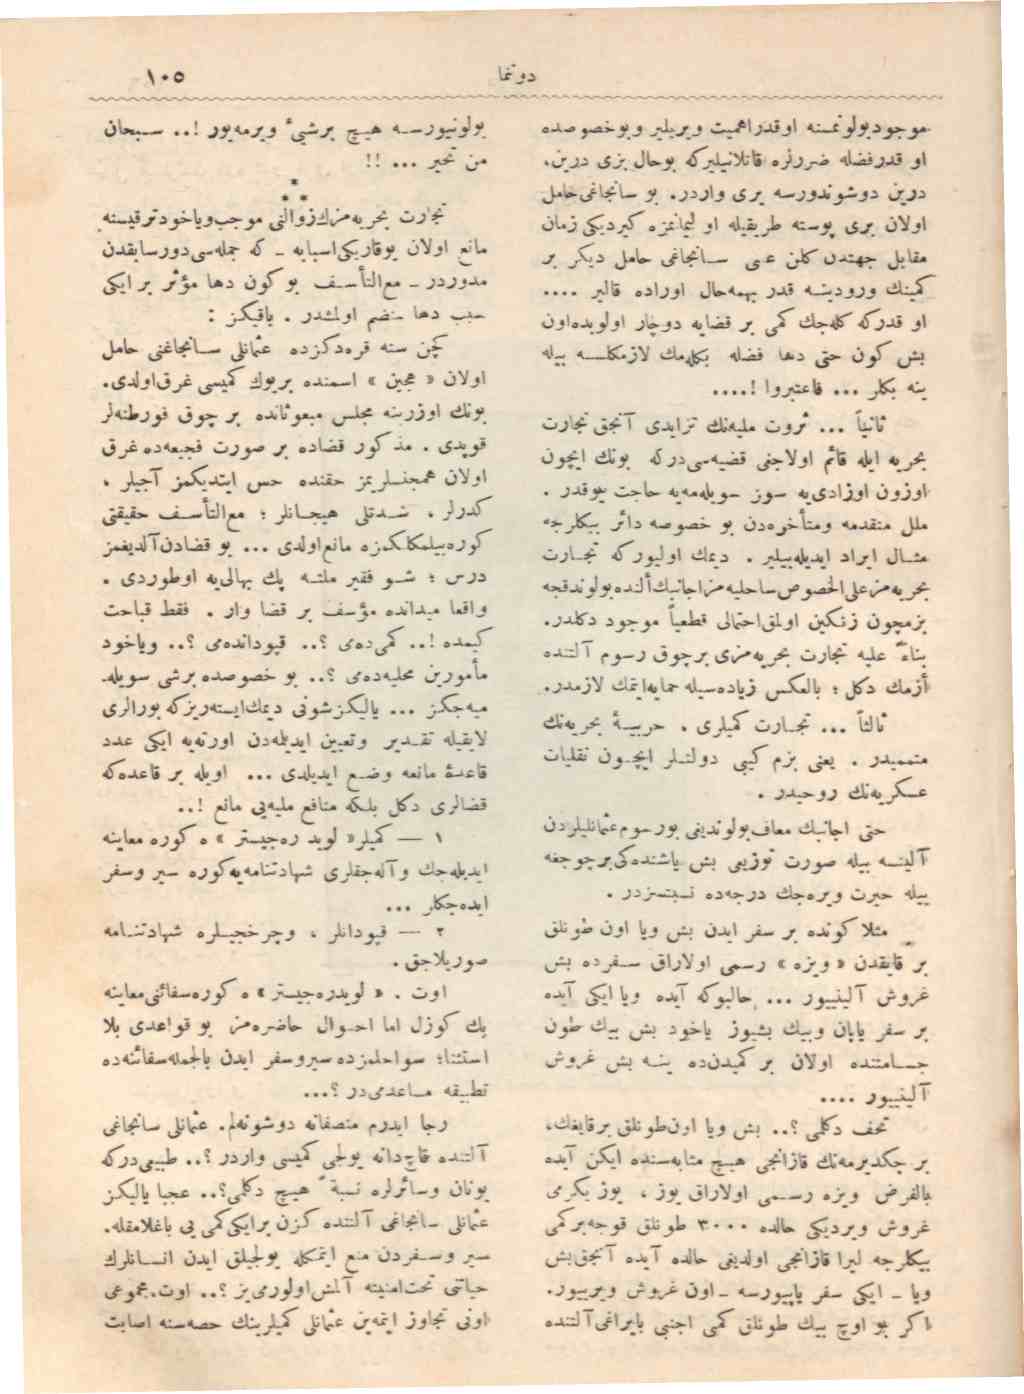 دوتنما
١٠٥
موجود بولوتمسنه اوقدر اهميت ويريلير وبوخصوصده
او قدر فضله ضررلره قاتلانيليركه بوحال بزى درين،
درين دوشوندورسه يرى واردر. بر سانجاغى حامل
اولان برى پوسته طريقيله او ليمانمزه كيرديكى زمان
مقابل جهتدن كلن عينى سانجاغى حامل ديكر بر
كمينك وروديـنه قدر بهمه‌حال اوراده قالير ....
او قدركه كله‌جك كمى بر قضايه دوچار اولوبده اون
بش كون حتى دها فضله بكله‌مك لازمكلسه بيله
ينه بكلر ... فاعتبروا !....
ثانياً ... ثروت مليه‌نك تزايدى آنجق تجارت
بحريه ايله قائم اولاجغى قضيه‌سى‌دركه بونك ايچون
اوزون اوزادى‌يه سوز سويله‌مه‌يه حاجت يوقدر .
ملل متقدمه ومتأخره‌دن بو خصوصه دائر بيكلرجه
مثال ايراد ايديله‌بيلير . ديمك اوليوركه تجارت
بحريه‌مز على‌الخصوص ساحليه‌مز اجانبك ألنده بولوندقجه
بزمچون زنكين اولمق احتمالى قطعياً موجود دكلدر.
بناءً عليه تجارت بحريه‌مزى برچوق رسوم آلتنده
أزمك دكل ؛ بالعكس زياده‌سيله حمايه ايتمك لازمدر.
ثالثاً ... تجارت كميلرى . حربيهٔ بحريه‌نك
متمميدر . يعنى بزم كيبى دولتلر ايچون نقليات
عسكريه‌نك روحيدر .
حتى اجانبك معاف بولونديغى بو رسوم عثمانليلردن
آلينسه بيله صورت توزيعى بش ياشنده‌كى برچوجغه
بيله حيرت ويره‌جك درجه‌ده نسبتسزدر .
مثلا كونده بر سفر ايدن بش ويا اون طونلق
بر قايقدن « ويزه » رسمى اولاراق سفرده بش
غروش آلينييور ... حالبوكه آيده ويا ايكى آيده
بر سفر ياپان وبيك بشيوز ياخود بش بيك طون
جسامتنده اولان بر كميدن‌ده ينه بش غروش
آلينييور ....
تحف دكلمى ؟.. بش ويا اون طونلق برقايغك،
بر چكديرمه‌نك قازانجى هيچ مثابه‌سنده ايكن آيده
بالفرض ويزه رسمى اولاراق يوز ، يوز يكرمى
غروش ويرديكى حالده ٣٠٠٠ طونلق قوجه بركمى
بيكلرجه ليرا قازانجى اولديغى حالده آيده آنجق بش
ويا ـ ايكى سفر ياپييورسه ـ اون غروش ويرييور.
اكر بو اوچ بيك طونلق كمى اجنبى بايراغى آلتنده
بولونيورسه هيچ برشيء ويرمه‌يور !.. سبحان
من تحير ... !!
* * *
تجارت بحريه‌مزك زوالنى موجب وياخود ترقيسنه
مانع اولان يوقاريكى اسبابه ـ كه جمله‌سى دورسابقدن
مدوردر ـ مع‌التأسف بو كون دها مؤثر بر ايكى
سبب دها منضم اولمشدر . باقيكز :
كچن سنه قره‌دكزده عثمانلى سانجاغنى حامل
اولان « هجين » اسمنده بريوك كميسى غرق اولدى.
بونك اوزرينه مجلس مبعوثانده بر چوق فورطنه‌لر
قوپدى . مذكور قضاده بر صورت فجيعه‌ده غرق
اولان همجنسلريمز حقنده حس ايتديكمز آجيلر ،
كدرلر . شدتلى هيجانلر ؛ مع‌التأسف حقيقتى
كوره‌بيلمكلكمزه مانع اولدى ... بو قضادن آلديغمز
درس ؛ شو فقير ملته پك بهالى‌يه اوطوردى .
واقعا ميدانده مؤسف بر قضا وار . فقط قباحت
كيمده !.. كمى‌ده‌مى ؟.. قپودانده‌مى ؟.. وياخود
مأمورين محليه‌ده‌مى ؟.. بو خصوصده برشى سويله.
ميه‌جكز ... يالكز شونى ديمك ايسته‌ريزكه بورالرى
لايقيله تقدير وتعيين ايديلمه‌دن اورته‌يه ايكى عدد
قاعدهٔ مانعه وضع ايديلدى ... اويله بر قاعده‌كه
قضالرى دكل بلكه منافع مليه‌يى مانع !..
١ — كميلر « لويد ره‌جيستر » ه كوره معاينه
ايديله‌جك وآله‌جقلرى شهادتنامه‌يه كوره سير وسفر
ايده‌جكلر ...
٢ — قپودانلر ، وچرخجيلره شهادتنامه
صوريلاجق .
اوت . « لويدره‌جيستر » ه كوره سفائنى معاينه
پك كوزل اما احوال حاضره‌مز بو قواعدى بلا
استثنا؛ سواحلمزده سيروسفر ايدن بالجمله سفائنه‌ده
تطبيقه مساعدمى‌در ؟...
رجا ايدرم منصفانه دوشونه‌لم. عثمانلى سانجاغى
آلتنده قاچ‌دانه يولجى كميسى واردر ؟.. طبيعى‌دركه
يونان وسائرلره نسبةً هيچ دكلمى؟.. عجبا يالكز
عثمانلى سانجاغى آلتنده كزن برايكى كمى يى باغلامقله.
سير وسفردن منع ايتمكله يولجيلق ايدن انسانلرك
حياتنى تحت امنيته آلمش اولورمى‌يز ؟.. اوت. مجموعى
اونى تجاوز ايتمه‌ين عثمانلى كميلرينك حصه‌سنه اصابت